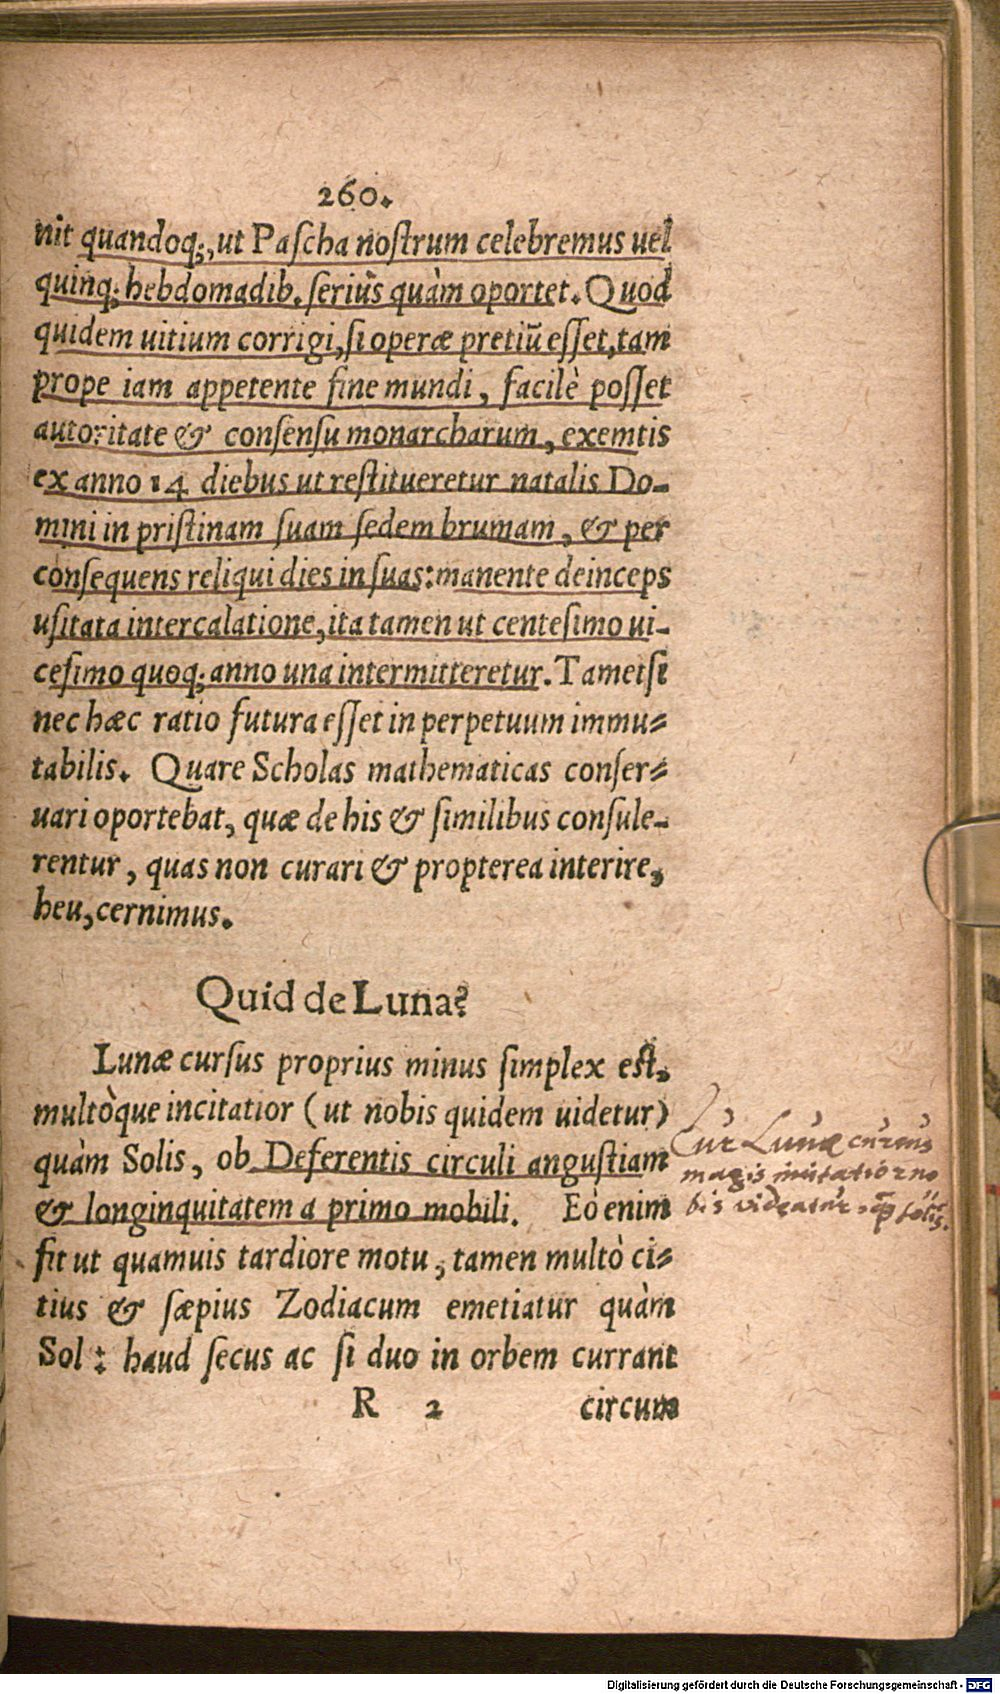 260.
nit quandoq;, ut Pascha nostrum celebremus uel
quinq; hebdomadib. seriùs quàm oportet. Quod
quidem uitium corrigi, si operæ pretiũ esset, tam
prope iam appetente fine mundi, facilè posset
autoritate & consensu monarcharum, exemtis
ex anno 14 diebus ut restitueretur natalis Do-
mini in pristinam suam sedem brumam, & per
consequens reliqui dies in suas: manente deinceps
usitata intercalatione, ita tamen ut centesimo ui-
cesimo quoq; anno una intermitteretur. Tametsi
nec hæc ratio futura esset in perpetuum immu-
tabilis. Quare Scholas mathematicas conser-
uari oportebat, quæ de his & similibus consule-
rentur, quas non curari & propterea interire,
heu, cernimus.
Quid de Luna?
Lunæ cursus proprius minus simplex est,
multòque incitatior (ut nobis quidem uidetur)
quàm Solis, ob Deferentis circuli angustiam
& longinquitatem a primo mobili. Eò enim
fit ut quamuis tardiore motu, tamen multò ci-
tius & sæpius Zodiacum emetiatur quàm
Sol: haud secus ac si duo in orbem currant
R 2 circum
Cur Lunæ cursus
magis incitatior no
bis videatur, qȝ solis.
Digitalisierung gefördert durch die Deutsche Forschungsgemeinschaft - DFG